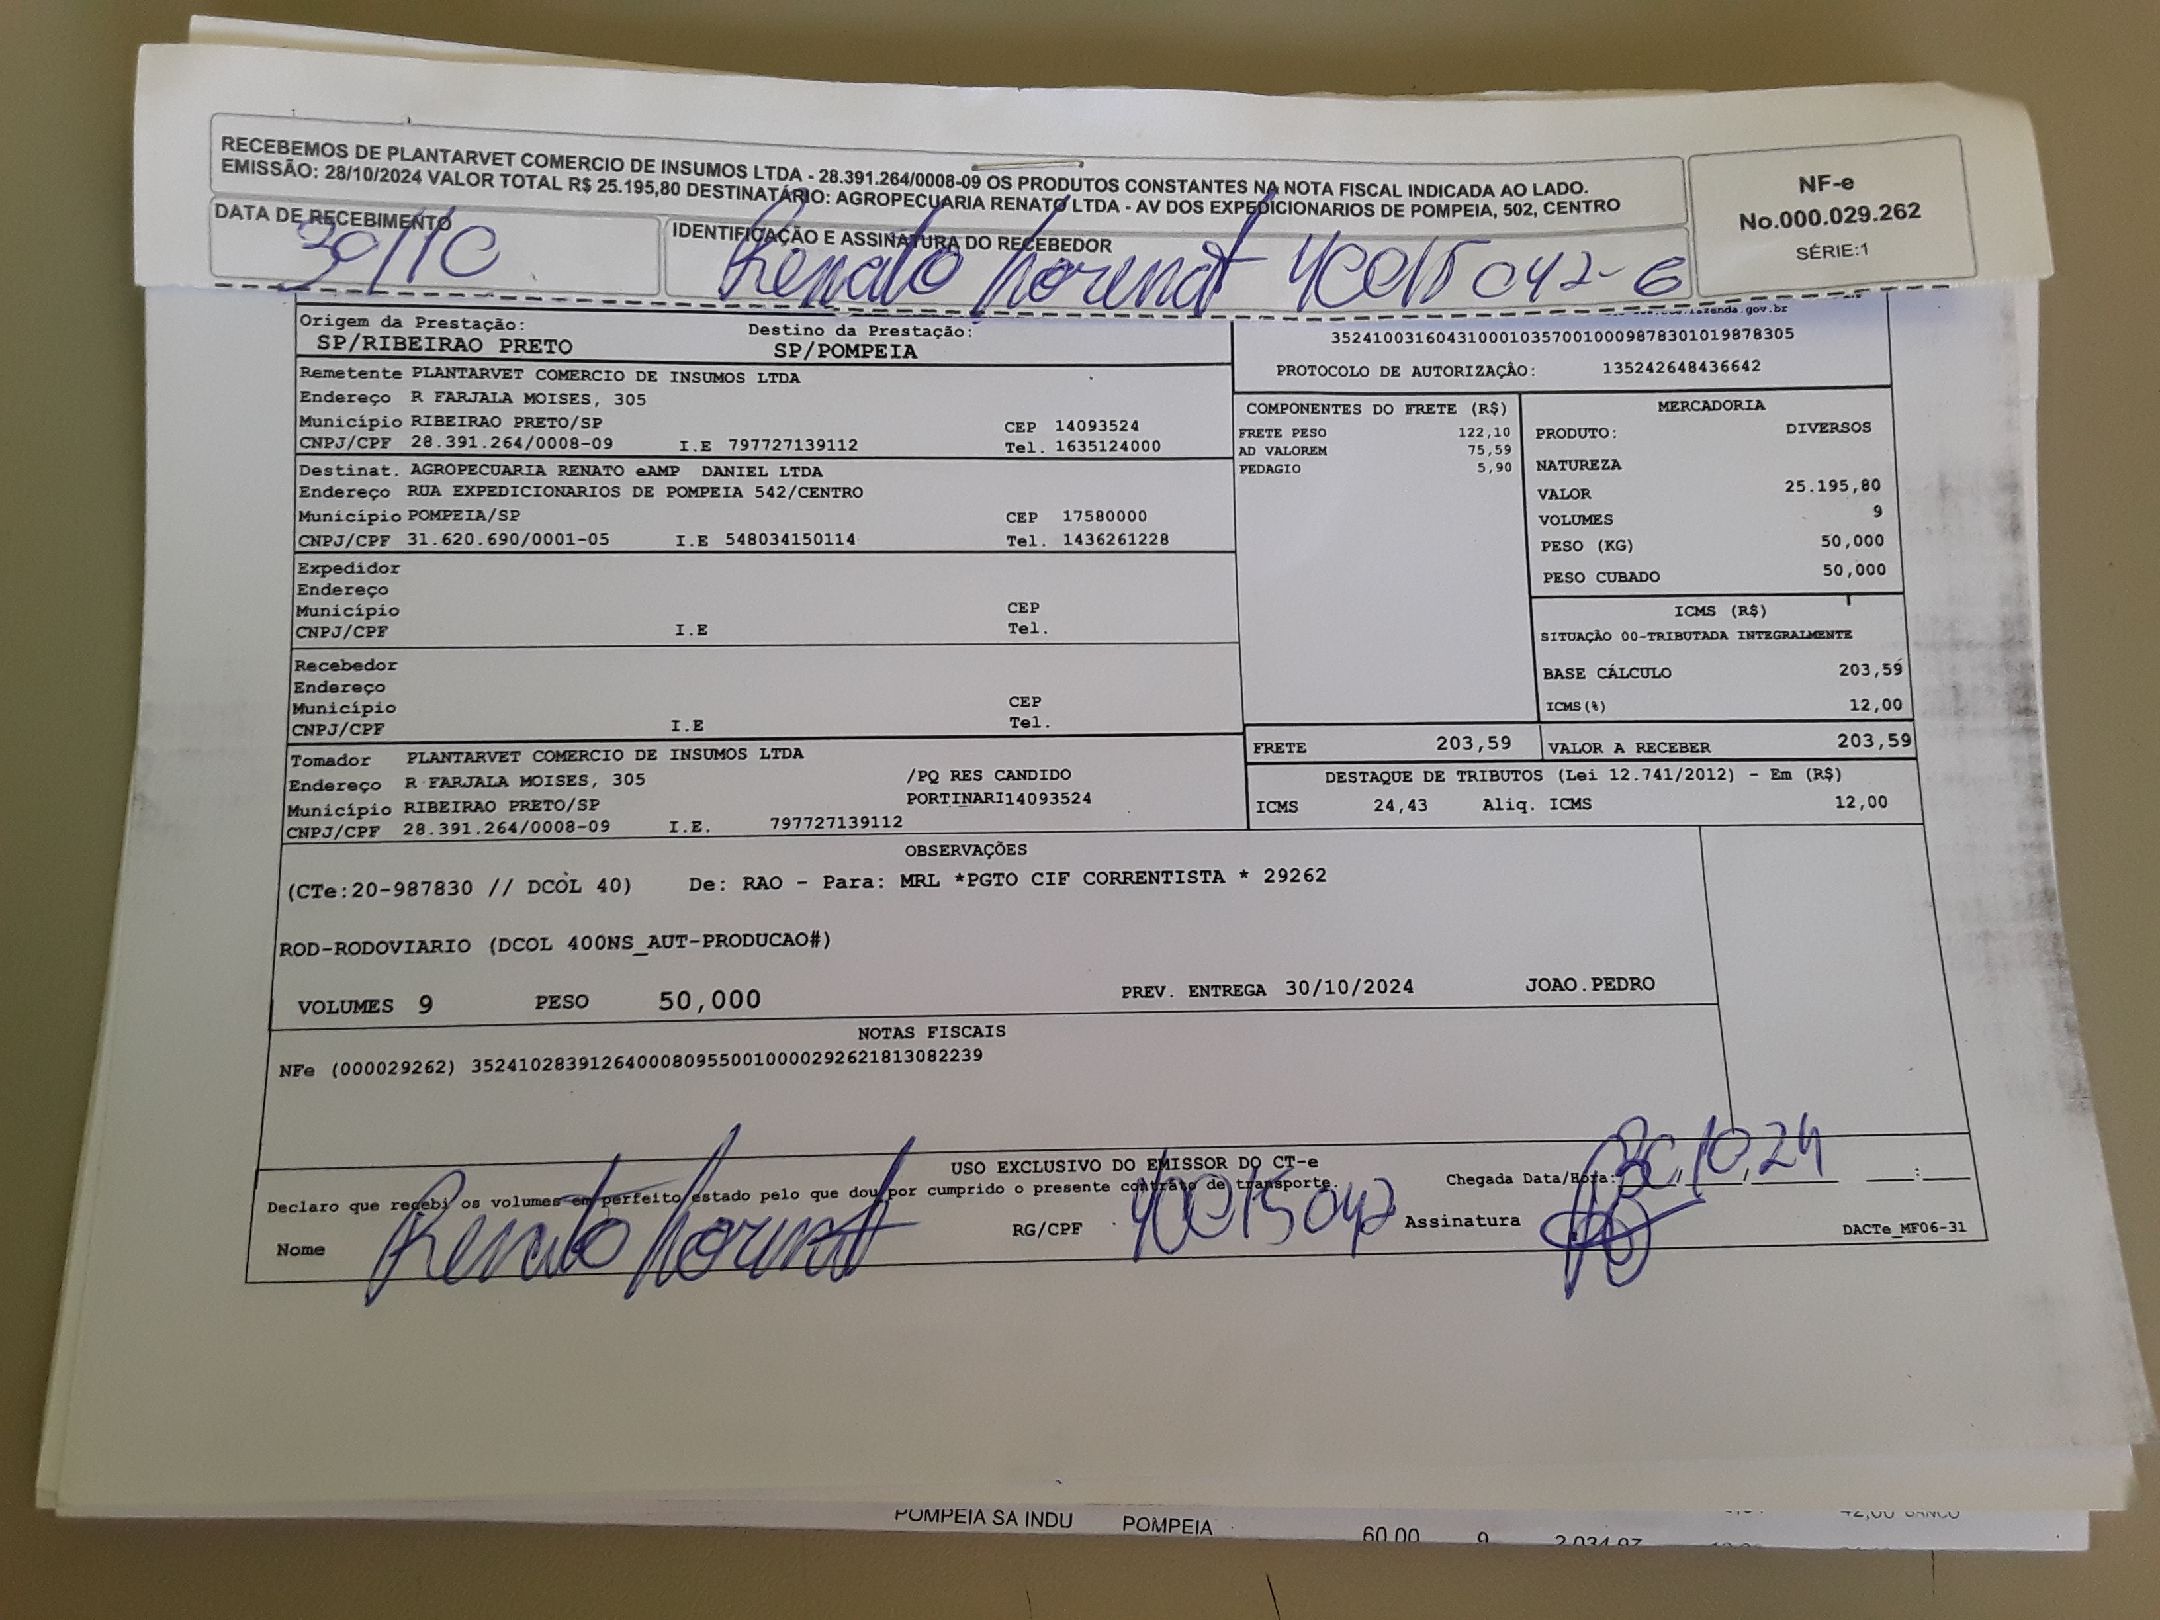 RECEBEMOS DE PLANTARVET COMERCIO DE INSUMOS LTDA - 28.391.264/0008-09 OS PRODUTOS CONSTANTES NA NOTA FISCAL INDICADA AO LADO.
EMISSÃO: 28/10/2024 VALOR TOTAL R$ 25.195,80 DESTINATÁRIO: AGROPECUARIA RENATO LTDA - AV DOS EXPEDICIONARIOS DE POMPEIA, 502, CENTRO
NF-e
No.000.029.262
SÉRIE:1
DATA DE RECEBIMENTO
30/10
IDENTIFICAÇÃO E ASSINATURA DO RECEBEDOR
Renato 40015042-6
Origem da Prestação: Destino da Prestação:
SP/RIBEIRAO PRETO SP/POMPEIA
Remetente PLANTARVET COMERCIO DE INSUMOS LTDA
Endereço R FARJALA MOISES, 305
Município RIBEIRAO PRETO/SP CEP 14093524
CNPJ/CPF 28.391.264/0008-09 I.E 797727139112 Tel. 1635124000
Destinat. AGROPECUARIA RENATO eAMP DANIEL LTDA
Endereço RUA EXPEDICIONARIOS DE POMPEIA 542/CENTRO
Município POMPEIA/SP CEP 17580000
CNPJ/CPF 31.620.690/0001-05 I.E 548034150114 Tel. 1436261228
Expedidor
Endereço
Município CEP
CNPJ/CPF I.E Tel.
Recebedor
Endereço
Município CEP
CNPJ/CPF I.E Tel.
Tomador PLANTARVET COMERCIO DE INSUMOS LTDA
Endereço R FARJALA MOISES, 305 /PQ RES CANDIDO
Município RIBEIRAO PRETO/SP PORTINARI14093524
CNPJ/CPF 28.391.264/0008-09 I.E. 797727139112
.gov.br
35241003160431000103570010009878301019878305
PROTOCOLO DE AUTORIZAÇÃO: 135242648436642
COMPONENTES DO FRETE (R$)
FRETE PESO 122,10
AD VALOREM 75,59
PEDAGIO 5,90
MERCADORIA
PRODUTO: DIVERSOS
NATUREZA
VALOR 25.195,80
VOLUMES 9
PESO (KG) 50,000
PESO CUBADO 50,000
ICMS (R$)
SITUAÇÃO 00-TRIBUTADA INTEGRALMENTE
BASE CÁLCULO 203,59
ICMS(%) 12,00
FRETE 203,59 VALOR A RECEBER 203,59
DESTAQUE DE TRIBUTOS (Lei 12.741/2012) - Em (R$)
ICMS 24,43 Aliq. ICMS 12,00
OBSERVAÇÕES
(CTe:20-987830 // DCOL 40) De: RAO - Para: MRL *PGTO CIF CORRENTISTA * 29262
ROD-RODOVIARIO (DCOL 400NS_AUT-PRODUCAO#)
VOLUMES 9 PESO 50,000 PREV. ENTREGA 30/10/2024 JOAO.PEDRO
NOTAS FISCAIS
NFe (000029262) 35241028391264000809550010000292621813082239
USO EXCLUSIVO DO EMISSOR DO CT-e
Declaro que recebi os volumes em perfeito estado pelo que dou por cumprido o presente contrato de transporte. Chegada Data/Hora: 30,10,24 :
Nome Renato RG/CPF 40015042 Assinatura DACTe_MF06-31
POMPEIA SA INDU POMPEIA 60,00 9 2.034,97 42,00 BANCO